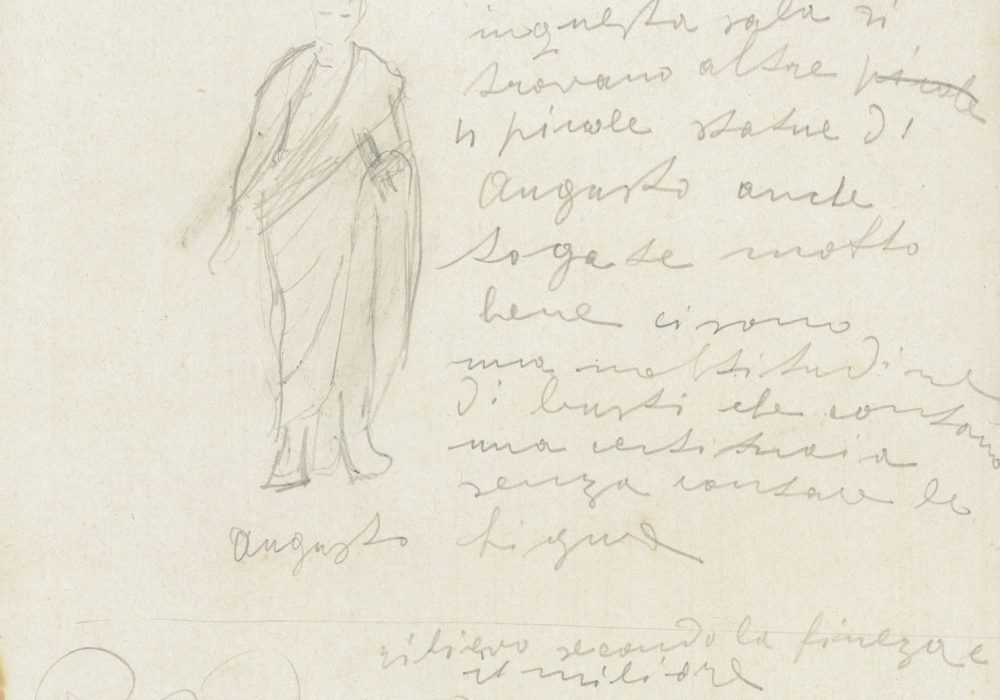 inquesta sala si
trovano altre picole
picole statue di
Augusto anche
togate molto
bene ci sono
una moltitudine
di busti che contano
una centinaia
senza contare le
figure
Augusto
rilievo secondo la finezza e
il miliore